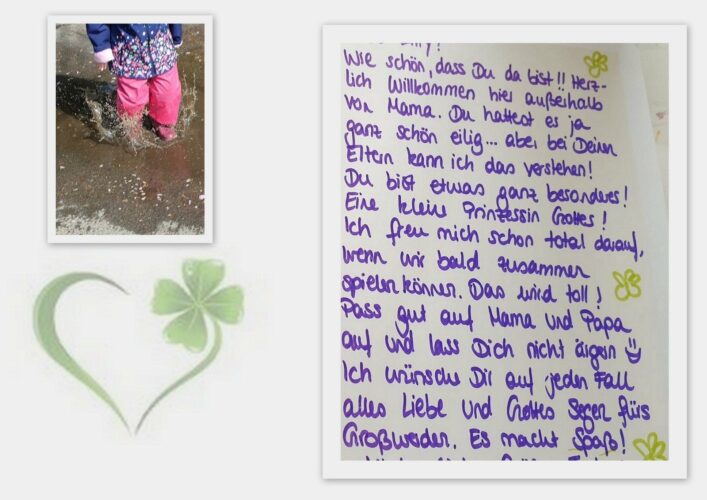 Wie schön, dass Du da bist!! Herz-
lich Willkommen hier außerhalb
von Mama. Du hattest es ja
ganz schön eilig... aber bei Deinen
Eltern kann ich das verstehen!
Du bist etwas ganz besonderes!
Eine kleine Prinzessin Gottes!
Ich freu mich schon total darauf,
wenn wir bald zusammen
spielen können. Das wird toll!
Pass gut auf Mama und Papa
auf und lass Dich nicht ärgern
Ich wünsche Dir auf jeden Fall
alles Liebe und Gottes Segen fürs
Großwerden. Es macht Spaß!